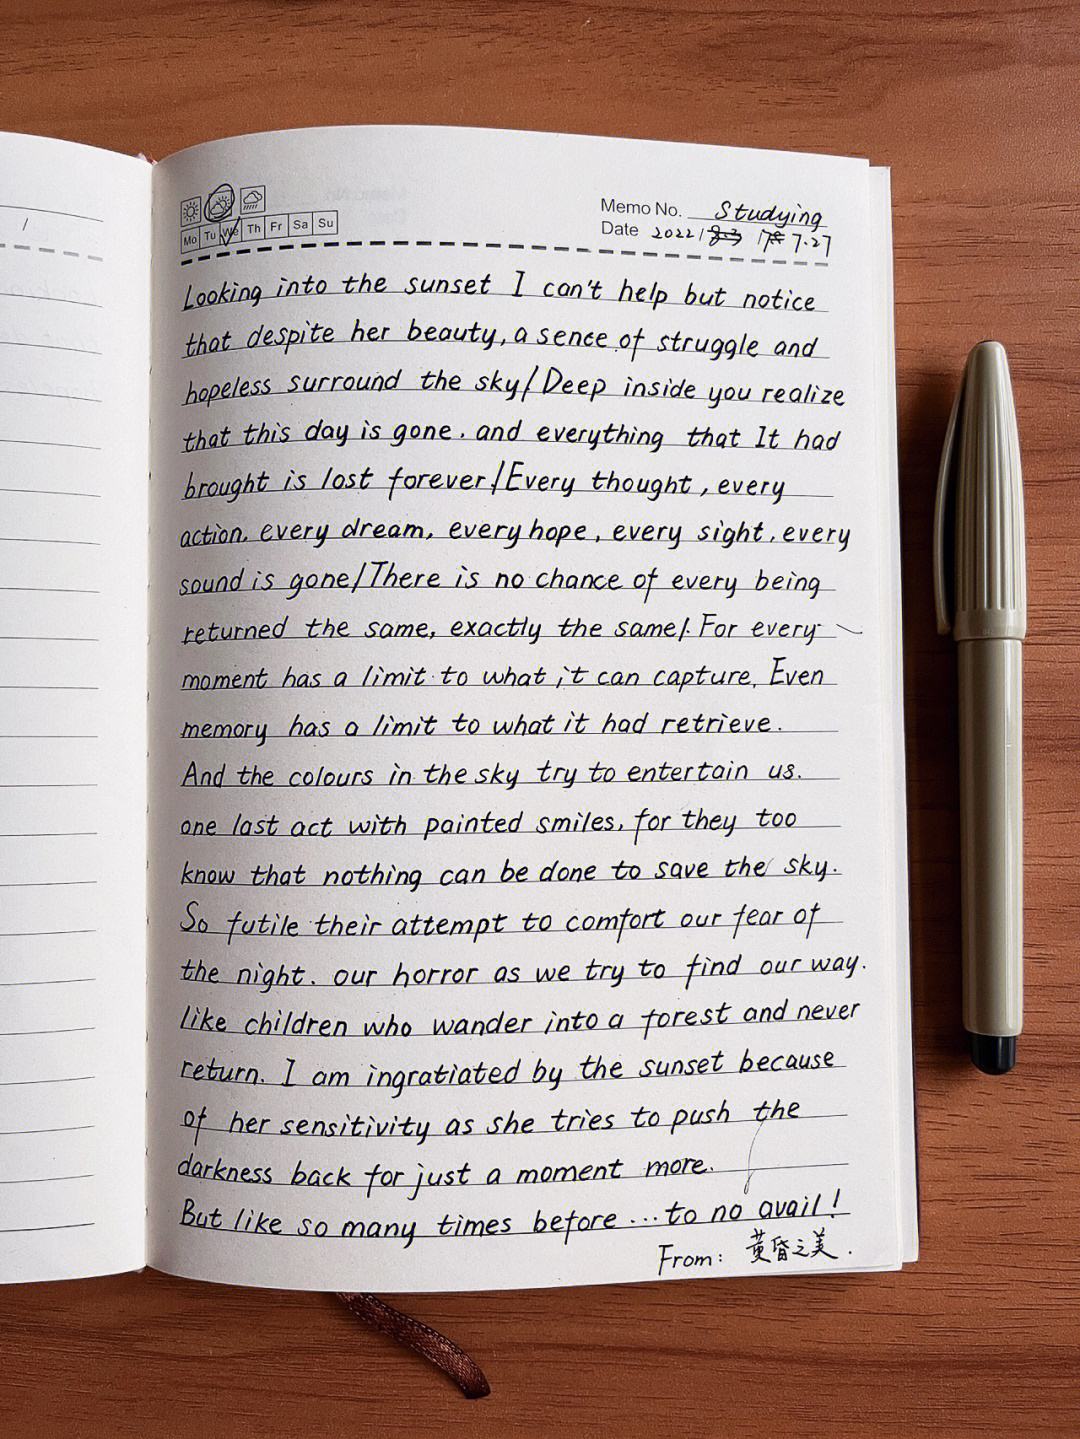 Mo Tu We Th Fr Sa Su
Memo No. Studying
Date 2022/ 7.27
Looking into the sunset I can't help but notice
that despite her beauty, a sence of struggle and
hopeless surround the sky/Deep inside you realize
that this day is gone. and everything that It had
brought is lost forever/Every thought, every
action, every dream, every hope, every sight, every
sound is gone/There is no chance of every being
returned the same, exactly the same/. For every
moment has a limit to what it can capture, Even
memory has a limit to what it had retrieve.
And the colours in the sky try to entertain us.
one last act with painted smiles, for they too
know that nothing can be done to save the sky.
So futile their attempt to comfort our fear of
the night. our horror as we try to find our way.
like children who wander into a forest and never
return. I am ingratiated by the sunset because
of her sensitivity as she tries to push the
darkness back for just a moment more.
But like so many times before ... to no avail!
From: 黄昏之美.